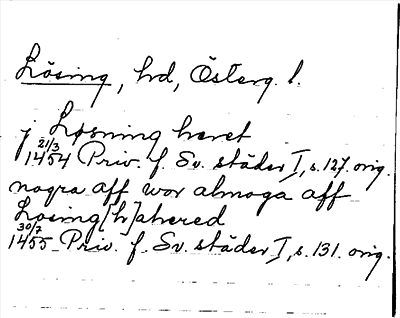 Lösing, hd, Österg. l.
j Løsning heret
21/3
1454 Priv. f. Sv. städer I, s. 127. orig.
nogra aff wor almoga aff
Losing[h]ahered
30/7
1455 Priv. f. Sv. städer I, s. 131. orig.